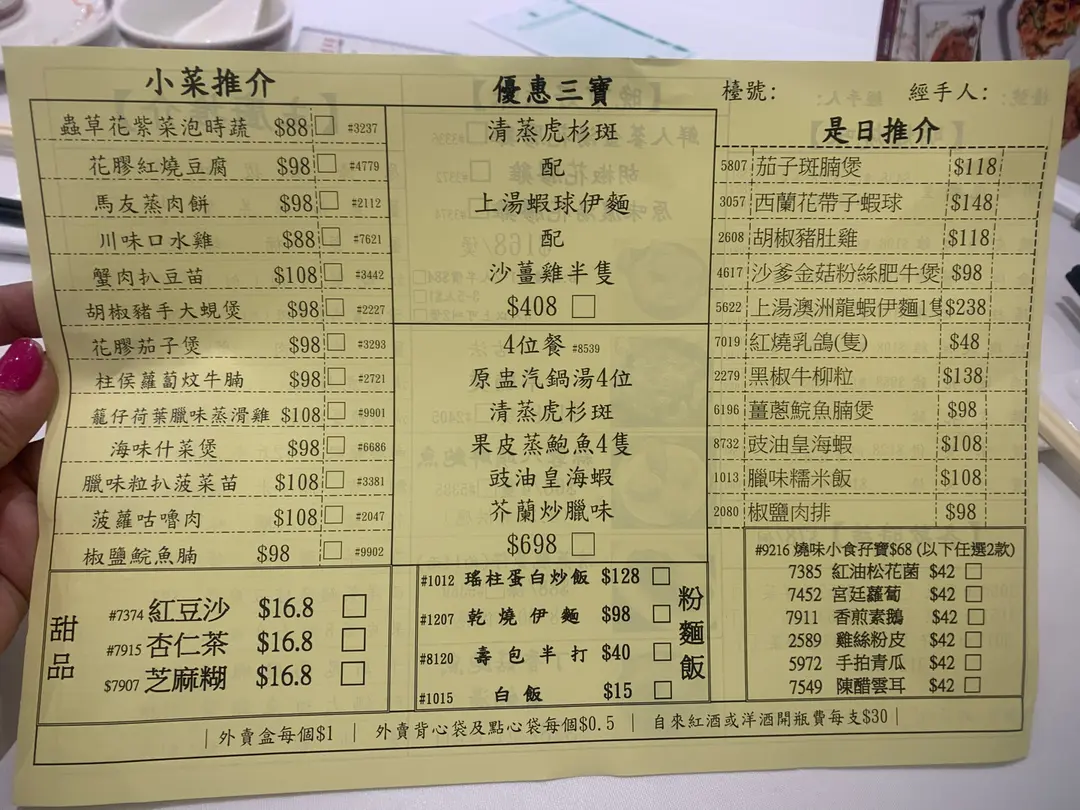 小菜推介
蟲草花紫菜泡時蔬 $88 #3237
花膠紅燒豆腐 $98 #4779
馬友蒸肉餅 $98 #2112
川味口水雞 $88 #7621
蟹肉扒豆苗 $108 #3442
胡椒豬手大蜆煲 $98 #2227
花膠茄子煲 $98 #3293
柱侯蘿蔔炆牛腩 $98 #2721
籠仔荷葉臘味蒸滑雞 $108 #9901
海味什菜煲 $98 #6686
臘味粒扒菠菜苗 $108 #3381
菠蘿咕嚕肉 $108 #2047
椒鹽鯇魚腩 $98 #9902
甜品
#7374 紅豆沙 $16.8
#7915 杏仁茶 $16.8
$7907 芝麻糊 $16.8
優惠三寶
清蒸虎杉斑
配
上湯蝦球伊麵
配
沙薑雞半隻
$408
4位餐 #8539
原盅汽鍋湯4位
清蒸虎杉斑
果皮蒸鮑魚4隻
豉油皇海蝦
芥蘭炒臘味
$698
#1012 瑤柱蛋白炒飯 $128
#1207 乾燒伊麵 $98
#8120 壽包半打 $40
#1015 白飯 $15
粉麵飯
檯號： 經手人：
是日推介
5807 茄子斑腩煲 $118
3057 西蘭花帶子蝦球 $148
2608 胡椒豬肚雞 $118
4617 沙爹金菇粉絲肥牛煲 $98
5622 上湯澳洲龍蝦伊麵1隻 $238
7019 紅燒乳鴿(隻) $48
2279 黑椒牛柳粒 $138
6196 薑蔥鯇魚腩煲 $98
8732 豉油皇海蝦 $108
1013 臘味糯米飯 $108
2080 椒鹽肉排 $98
#9216 燒味小食孖寶$68 (以下任選2款)
7385 紅油松花菌 $42
7452 宮廷蘿蔔 $42
7911 香煎素鵝 $42
2589 雞絲粉皮 $42
5972 手拍青瓜 $42
7549 陳醋雲耳 $42
| 外賣盒每個$1 | 外賣背心袋及點心袋每個$0.5 | 自來紅酒或洋酒開瓶費每支$30 |